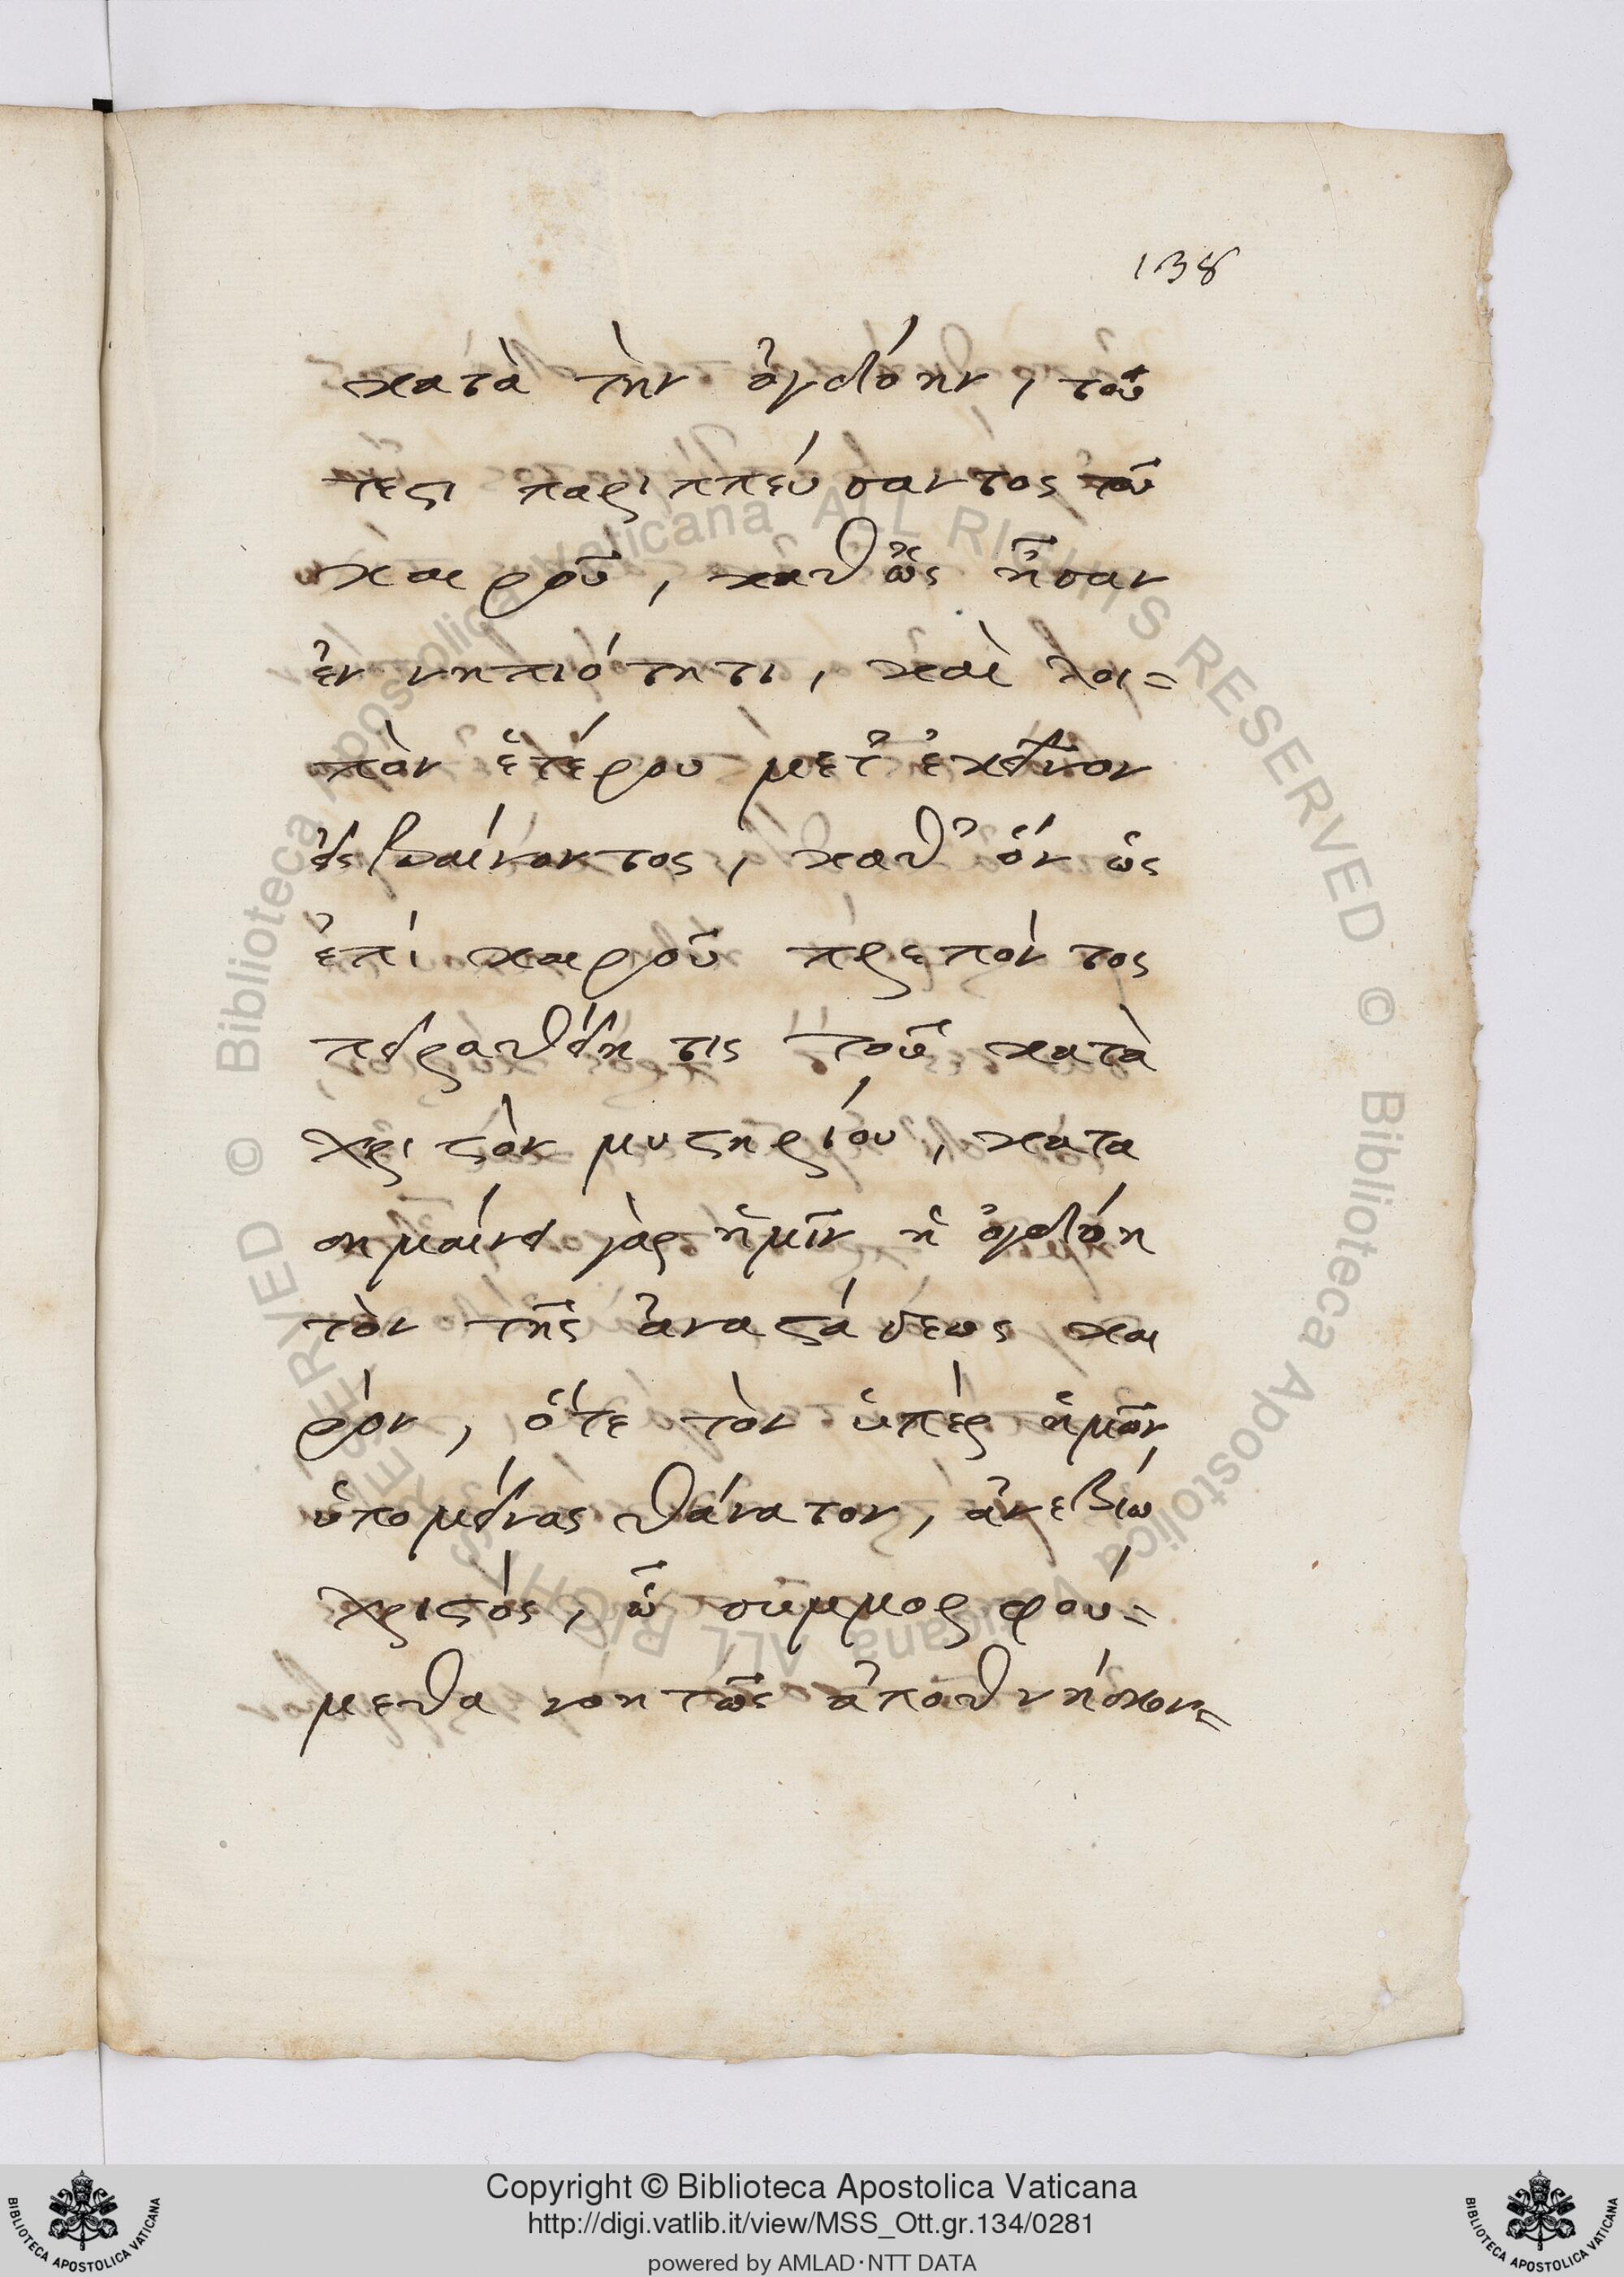 138
κατὰ τὴν ὀγδόην, τοῦ
τέστι παριππεύσαντος τοῦ
καιροῦ, καθ' ὃν ἦσαν
ἐν νηπιότητι, καὶ λοι=
πὸν ἑτέρου μετ' ἐκεῖνον
εἰσβαίνοντος, καθ' ὃν ὡς
ἐπὶ καιροῦ πρεπόντος
πειραθείη τις τοῦ κατὰ
χριστὸν μυστηρίου, κατα
σημαίνει γὰρ ἡμῖν ἡ ὀγδόη
τὸν τῆς ἀναστάσεως και
ρὸν, ὅτε τὸν ὑπὲρ ἡμῶν
ὑπομείνας θάνατον, ἀνεβίω
χριστός, ᾧ συμμορφού=
μεθα νοητῶς ἀποθνήσκον=
© Biblioteca Apostolica Vaticana ALL RIGHTS RESERVED © Biblioteca Apostolica Vaticana ALL RIGHTS RESERVED
Copyright © Biblioteca Apostolica Vaticana
http://digi.vatlib.it/view/MSS_Ott.gr.134/0281
powered by AMLAD·NTT DATA
BIBLIOTECA APOSTOLICA VATICANA
BIBLIOTECA APOSTOLICA VATICANA